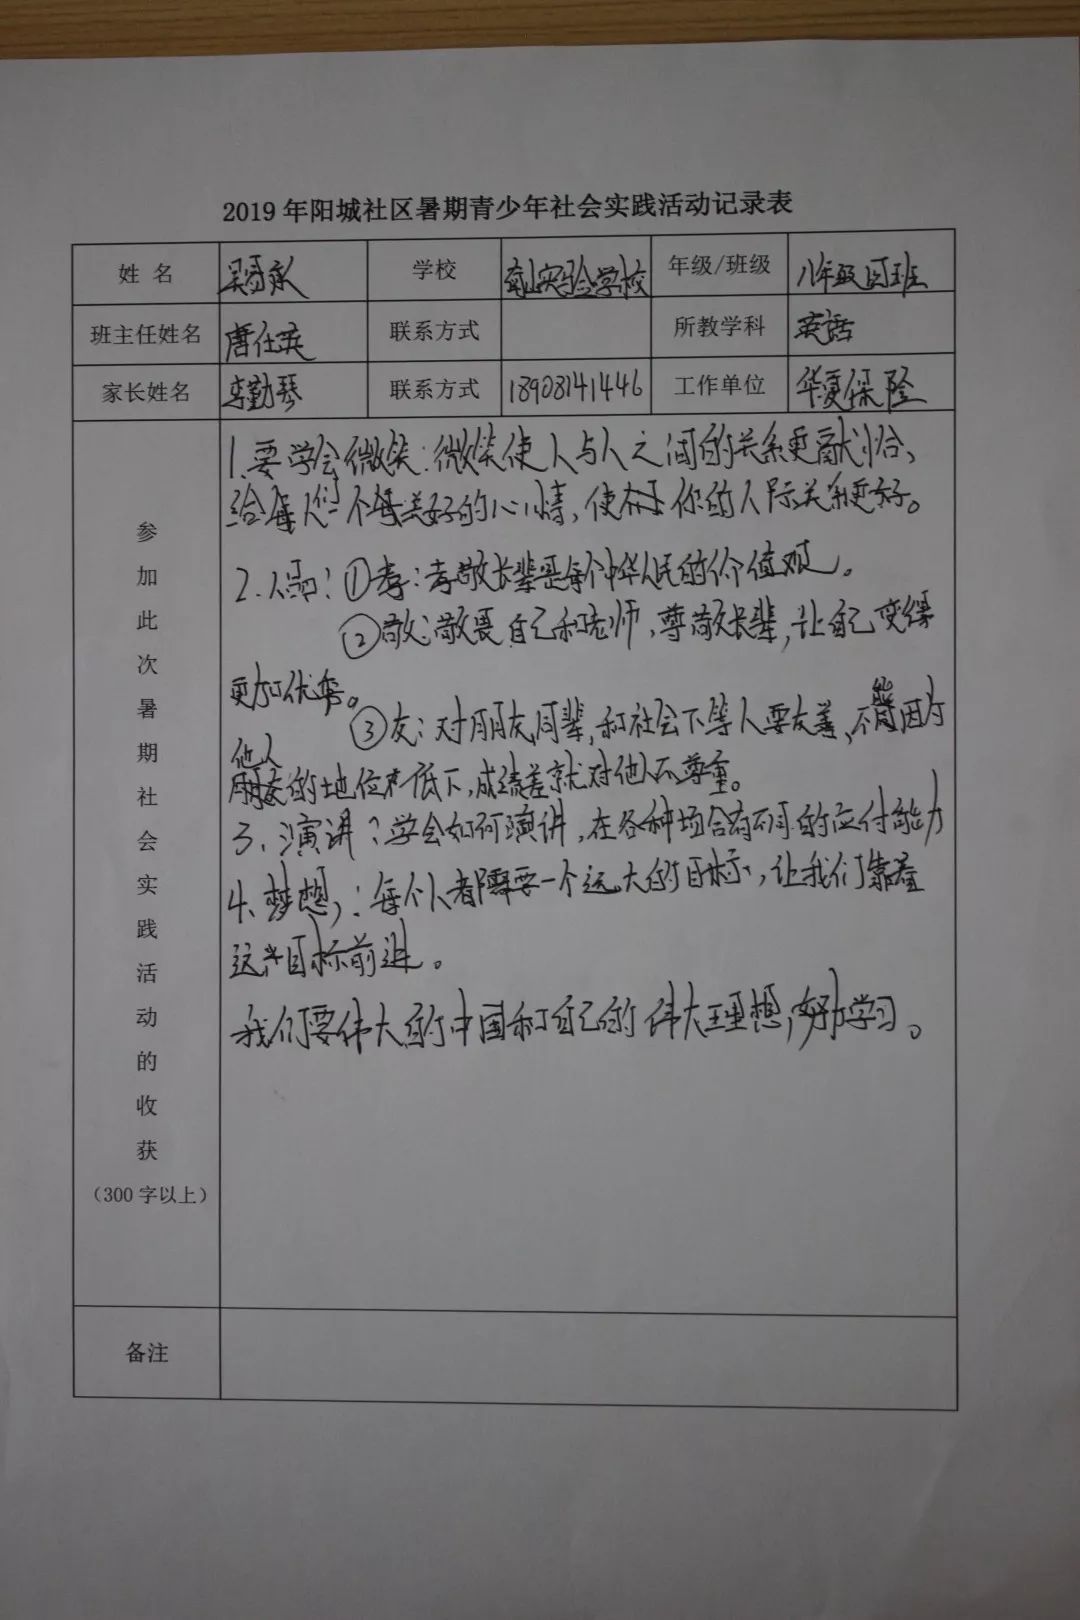 2019年阳城社区暑期青少年社会实践活动记录表
姓 名 学校 南山实验学校 年级/班级 八年级四班
班主任姓名 唐仕英 联系方式 所教学科 英语
家长姓名 李勤琴 联系方式 18908141446 工作单位 华夏保险
参加此次暑期社会实践活动的收获
(300字以上)
1.要学会微笑:微笑使人与人之间的关系更融洽、
给每人们一个美好的心情,使你的人际关系更好。
2.人品:①孝:孝敬长辈是每个中华人民的价值观。
②敬:敬畏自己和老师,尊敬长辈,让自己变得
更加优秀。
③友:对朋友,同辈,和社会下等人要友善,不能因为
他人的地位低下,成绩差就对他人不尊重。
3、演讲:学会如何演讲,在各种场合有不同的应付能力
4、梦想:每个人都需要一个远大的目标,让我们靠着
这些目标前进。
我们要伟大的中国和自己的伟大理想,努力学习。
备注